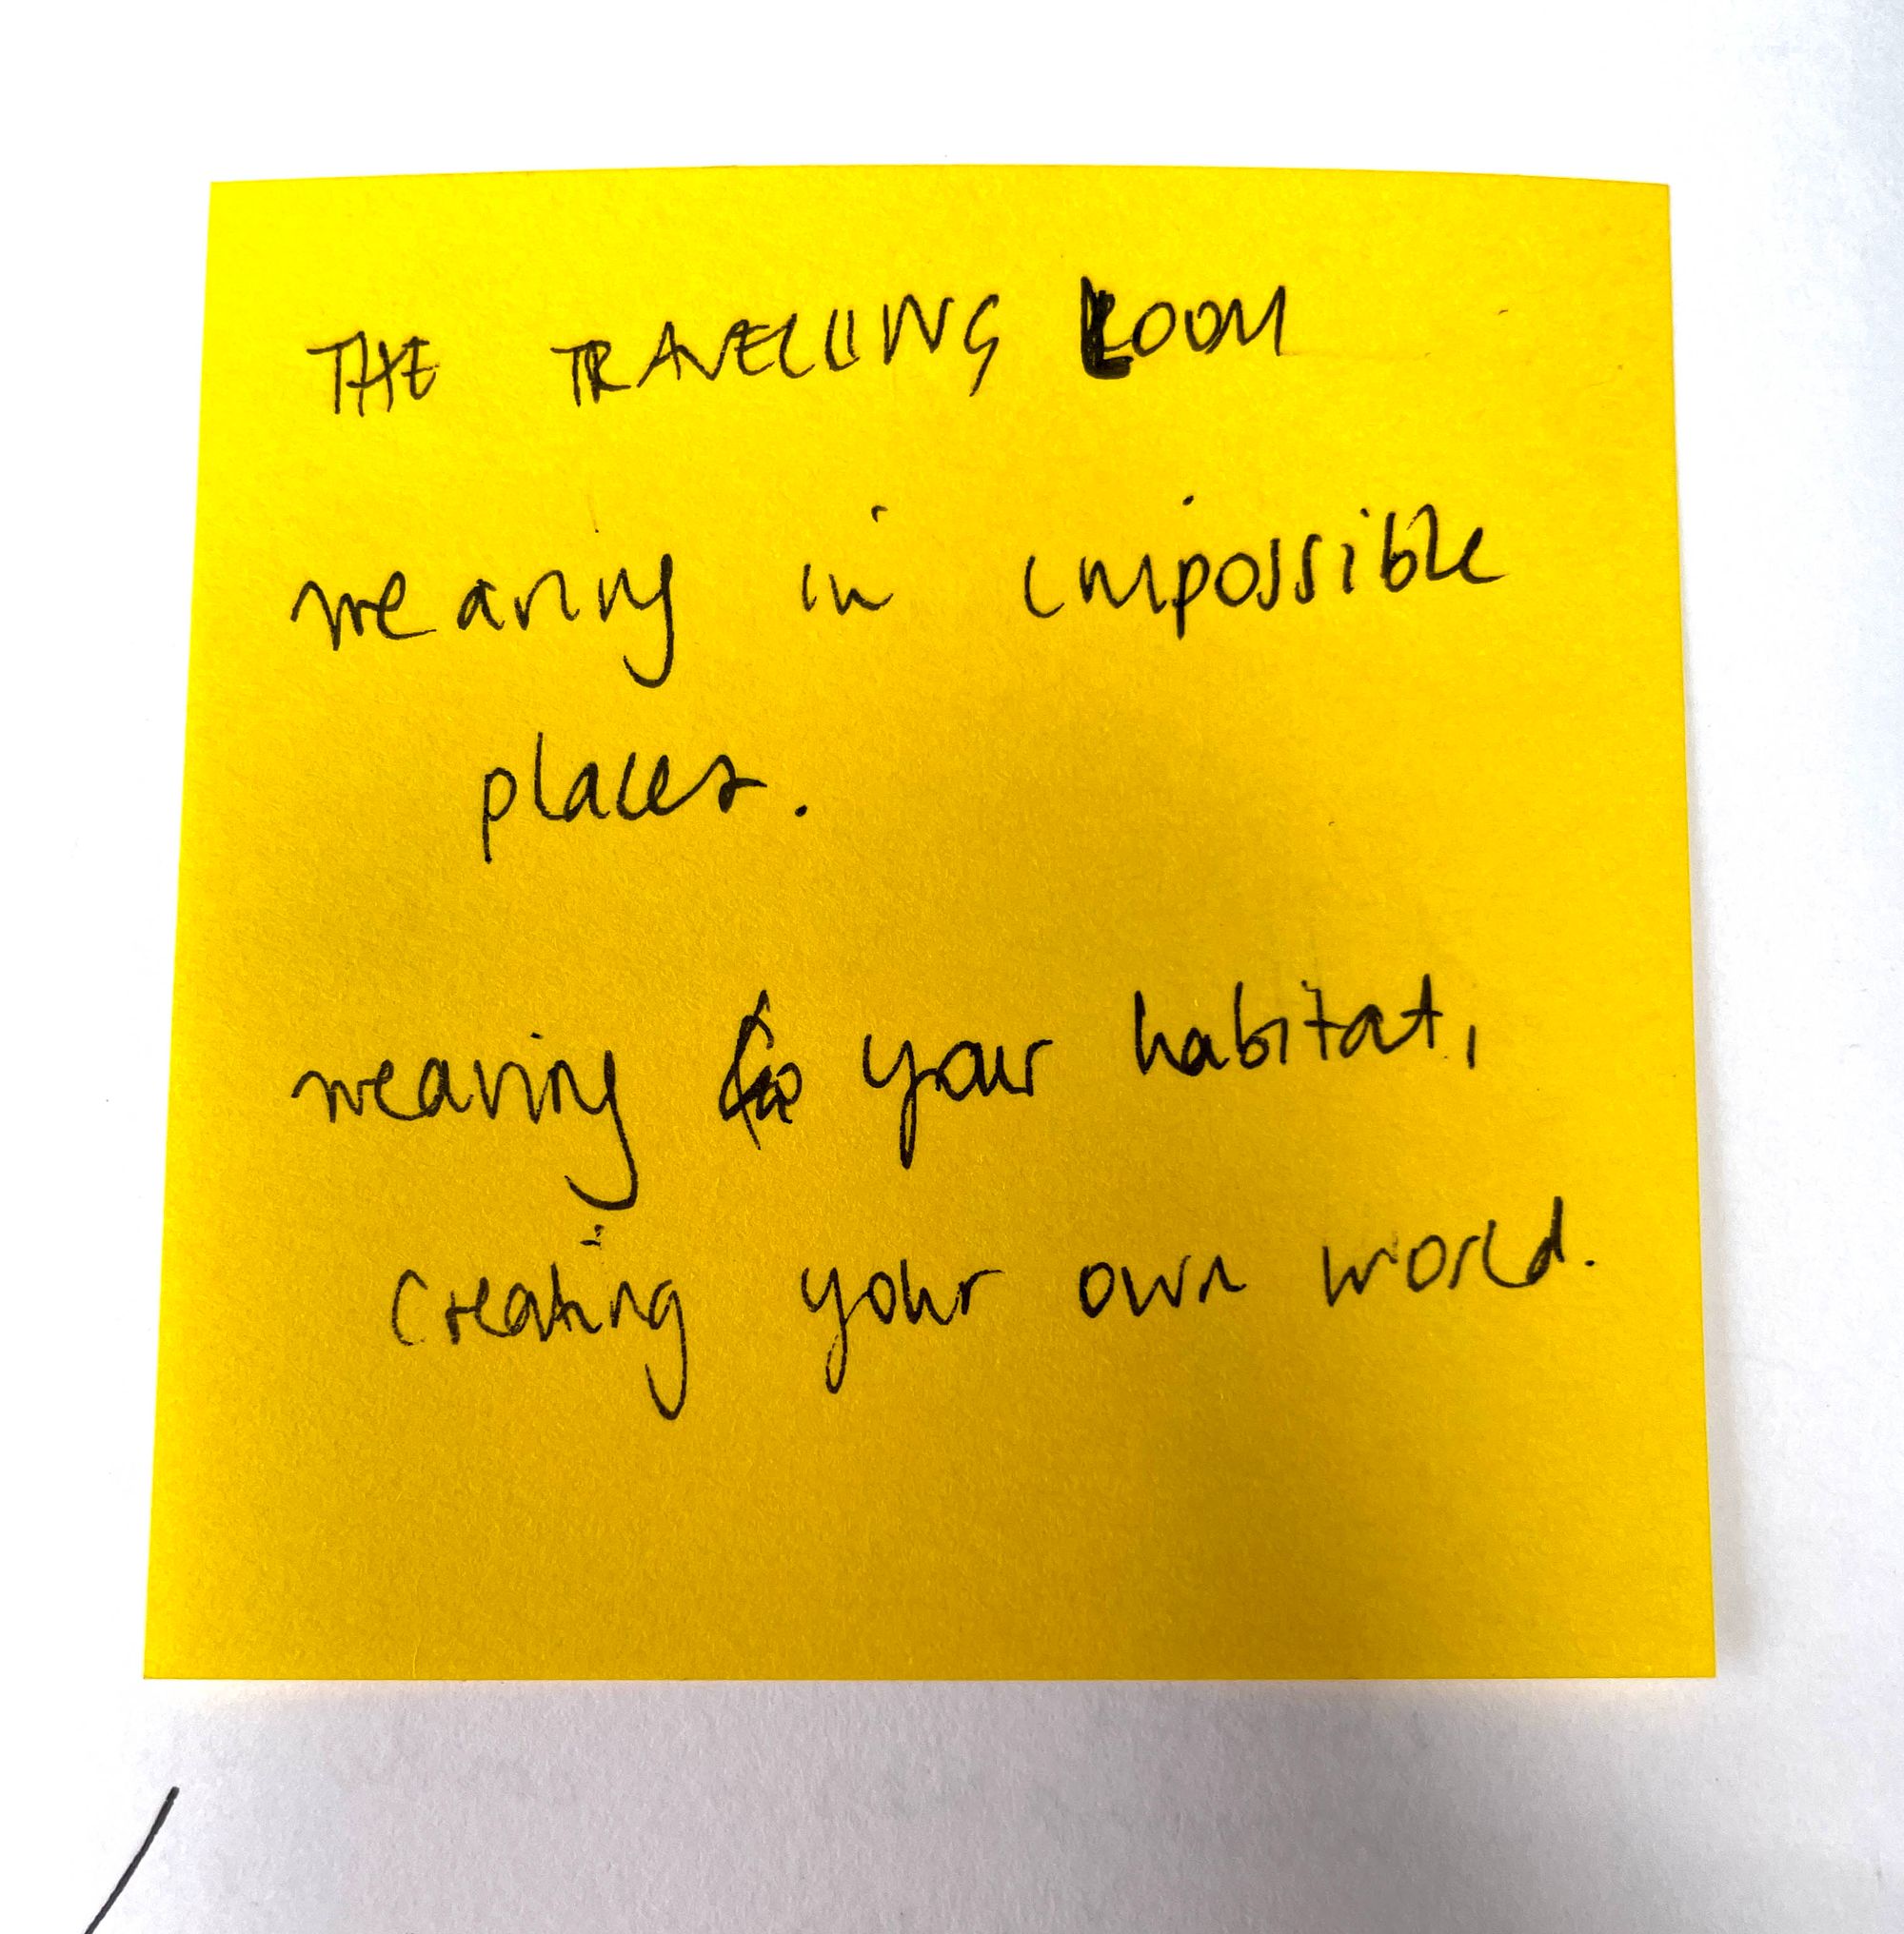 THE TRAVELLING LOOM
weaving in impossible
places.
weaving your habitat,
creating your own world.